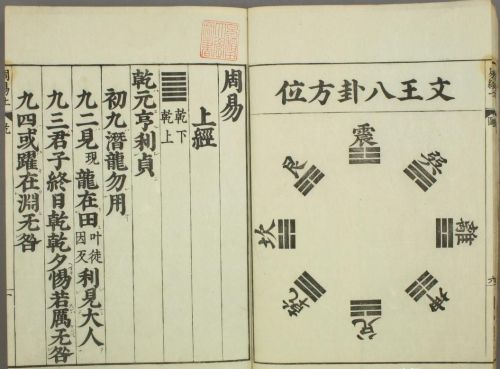 文王八卦方位
震
巽
離
坤
兌
乾
坎
艮
周易
上經
乾下
乾上
乾元亨利貞
初九潛龍勿用
九二見現龍在田叶徒因反利見大人
九三君子終日乾乾夕惕若厲无咎
九四或躍在淵无咎
周易上